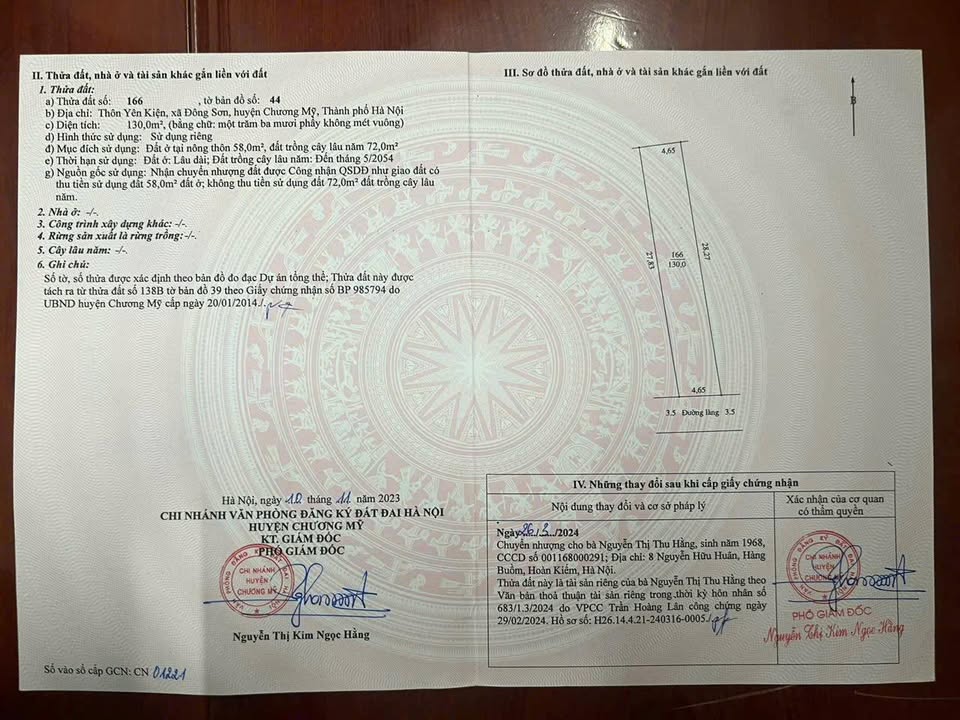 II. Thửa đất, nhà ở và tài sản khác gắn liền với đất
1. Thửa đất:
a) Thửa đất số: 166 , tờ bản đồ số: 44
b) Địa chỉ: Thôn Yên Kiện, xã Đông Sơn, huyện Chương Mỹ, Thành phố Hà Nội
c) Diện tích: 130,0m², (bằng chữ: một trăm ba mươi phẩy không mét vuông)
d) Hình thức sử dụng: Sử dụng riêng
đ) Mục đích sử dụng: Đất ở tại nông thôn 58,0m², đất trồng cây lâu năm 72,0m²
e) Thời hạn sử dụng: Đất ở: Lâu dài; Đất trồng cây lâu năm: Đến tháng 5/2054
g) Nguồn gốc sử dụng: Nhận chuyển nhượng đất được Công nhận QSDĐ như giao đất có
thu tiền sử dụng đất 58,0m² đất ở; không thu tiền sử dụng đất 72,0m² đất trồng cây lâu
năm.
2. Nhà ở: -/-.
3. Công trình xây dựng khác: -/-.
4. Rừng sản xuất là rừng trồng: -/-.
5. Cây lâu năm: -/-.
6. Ghi chú:
Số tờ, số thửa được xác định theo bản đồ đo đạc Dự án tổng thể; Thửa đất này được
tách ra từ thửa đất số 138B tờ bản đồ 39 theo Giấy chứng nhận số BP 985794 do
UBND huyện Chương Mỹ cấp ngày 20/01/2014./.
Hà Nội, ngày 10 tháng 11 năm 2023
CHI NHÁNH VĂN PHÒNG ĐĂNG KÝ ĐẤT ĐAI HÀ NỘI
HUYỆN CHƯƠNG MỸ
KT. GIÁM ĐỐC
PHÓ GIÁM ĐỐC
VĂN PHÒNG ĐĂNG KÝ ĐẤT ĐAI HÀ NỘI
CHI NHÁNH
HUYỆN
CHƯƠNG MỸ
Nguyễn Thị Kim Ngọc Hằng
Số vào sổ cấp GCN: CN 01221
III. Sơ đồ thửa đất, nhà ở và tài sản khác gắn liền với đất
B
4,65
27,83
166
130,0
28,27
4,65
3.5 Đường làng 3.5
IV. Những thay đổi sau khi cấp giấy chứng nhận
Nội dung thay đổi và cơ sở pháp lý
Xác nhận của cơ quan
có thẩm quyền
Ngày 26/3/2024
Chuyển nhượng cho bà Nguyễn Thị Thu Hằng, sinh năm 1968,
CCCD số 001168000291; Địa chỉ: 8 Nguyễn Hữu Huân, Hàng
Buồm, Hoàn Kiếm, Hà Nội.
Thửa đất này là tài sản riêng của bà Nguyễn Thị Thu Hằng theo
Văn bản thoả thuận tài sản riêng trong thời kỳ hôn nhân số
683/1.3/2024 do VPCC Trần Hoàng Lân công chứng ngày
29/02/2024. Hồ sơ số: H26.14.4.21-240316-0005./.
CHI NHÁNH
HUYỆN
CHƯƠNG MỸ
PHÓ GIÁM ĐỐC
Nguyễn Thị Kim Ngọc Hằng